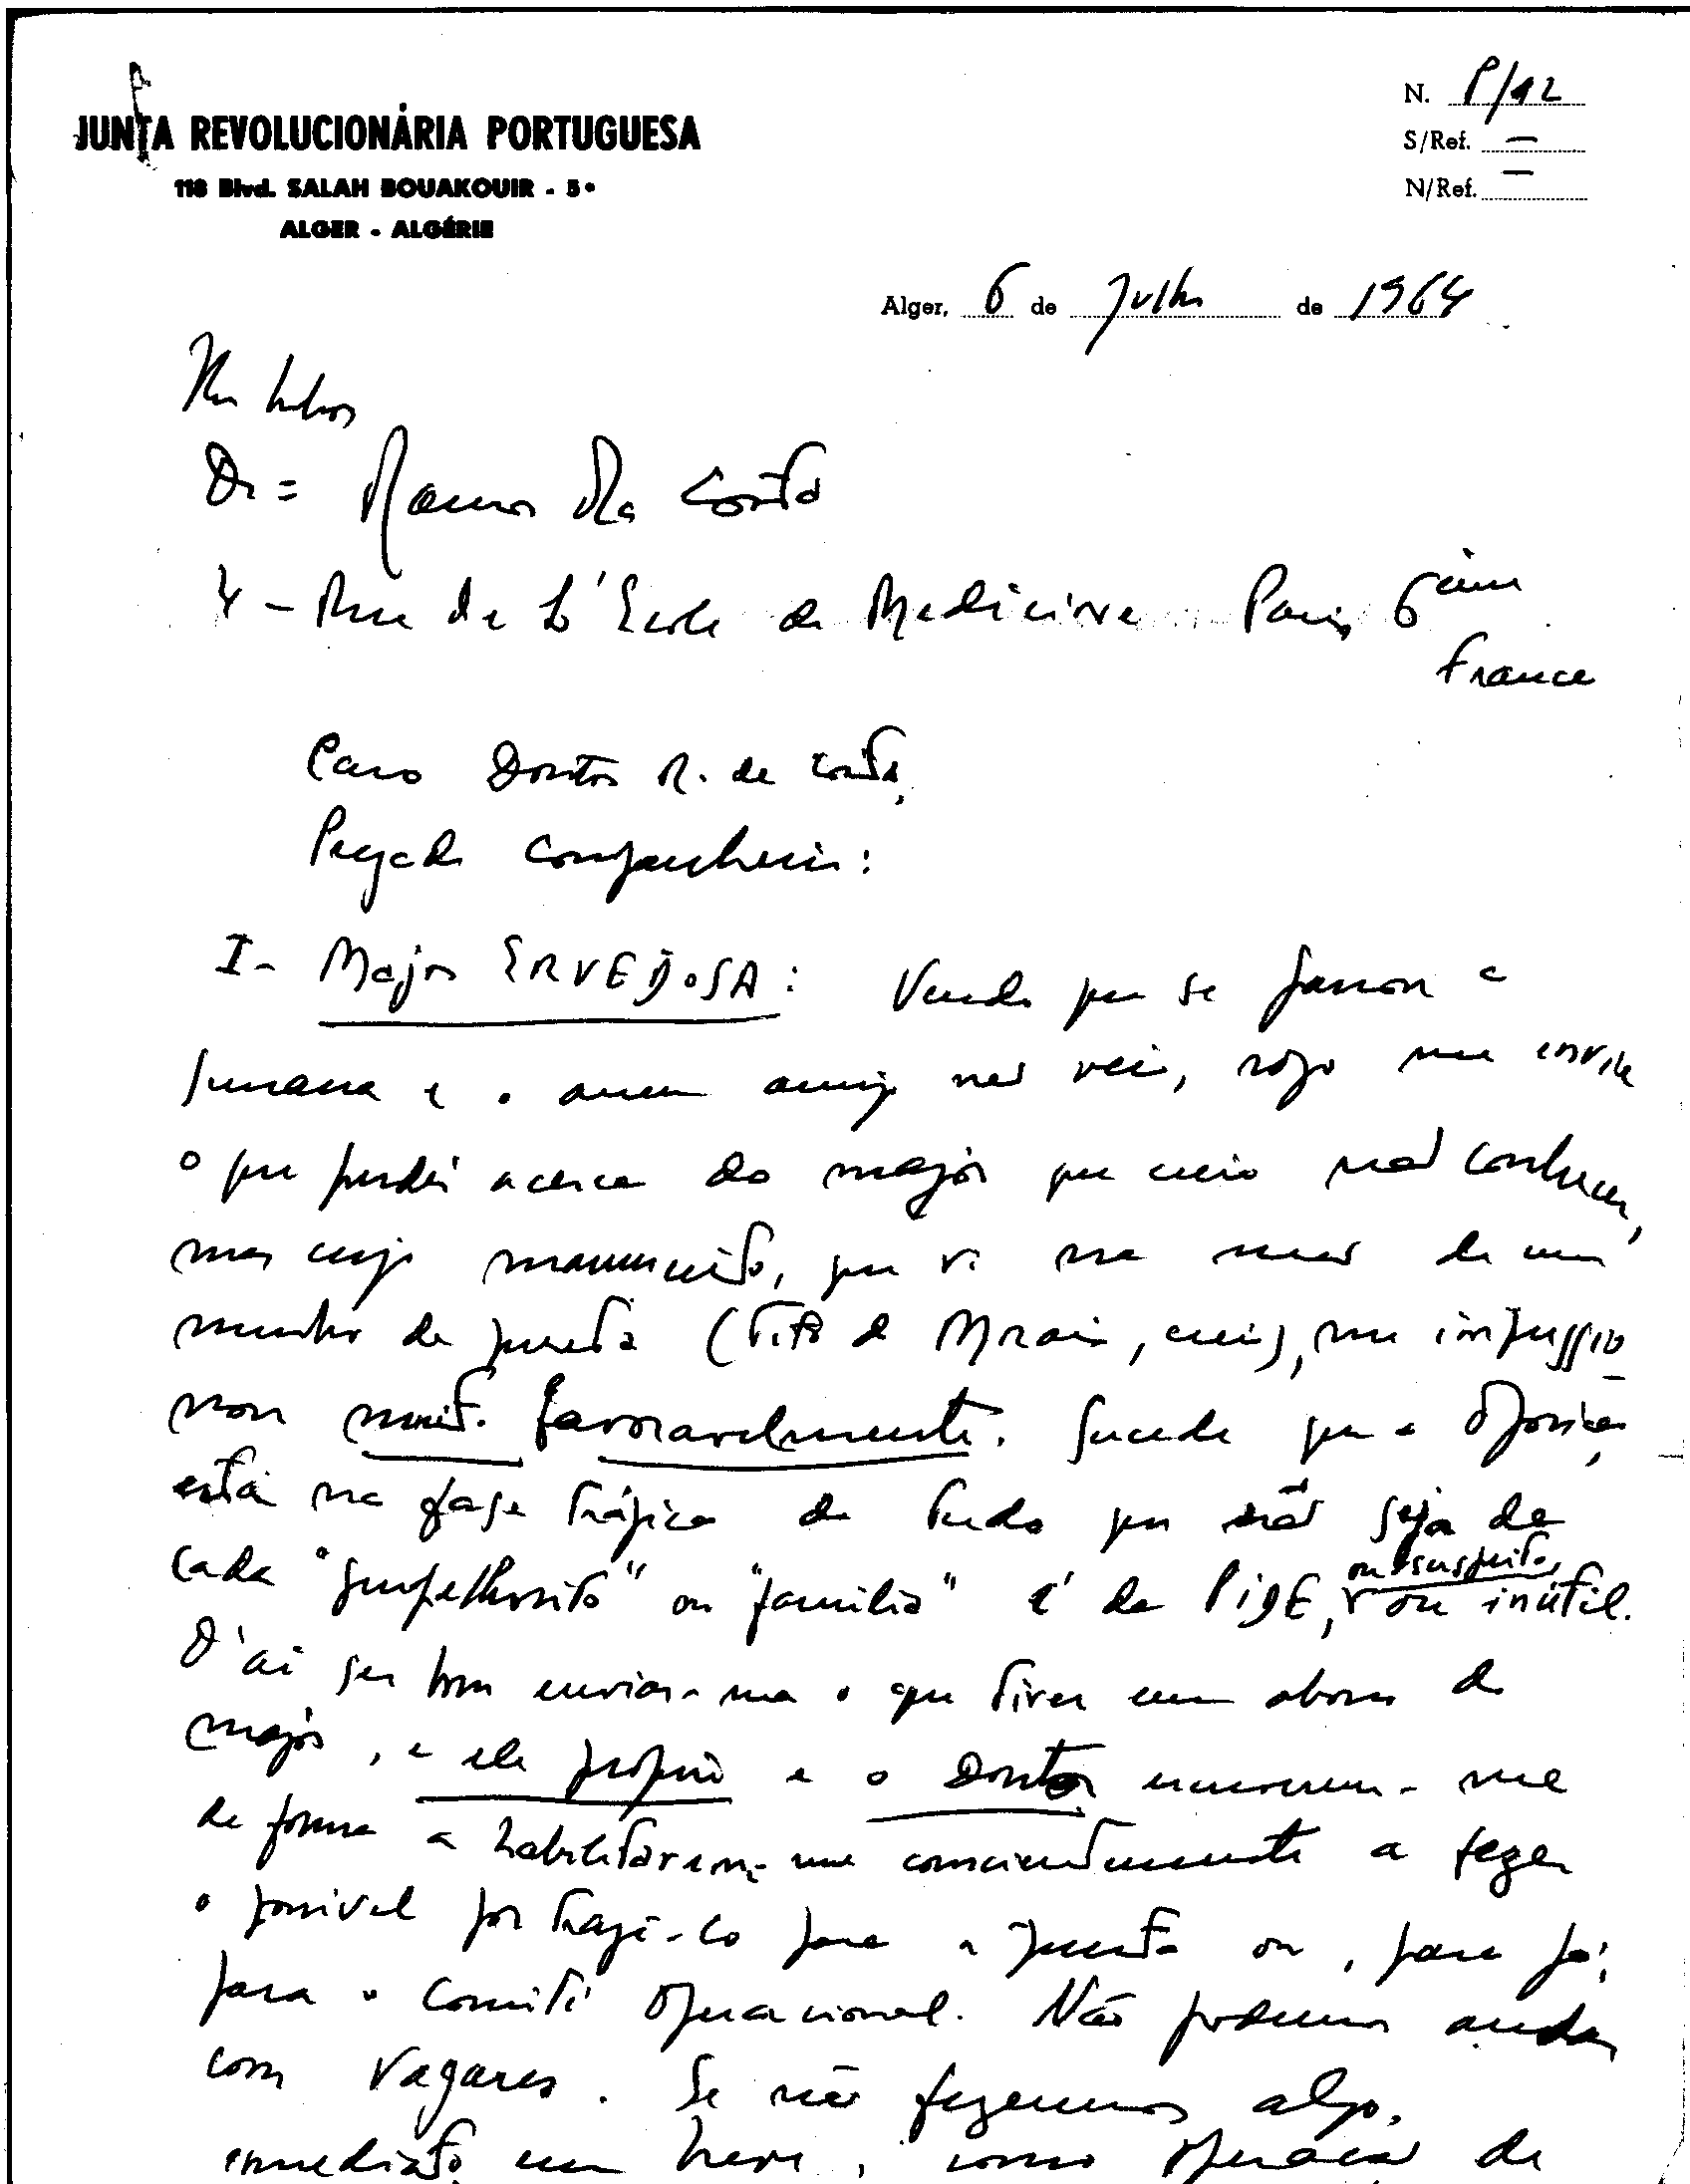 JUNTA REVOLUCIONÁRIA PORTUGUESA
118 Blvd. SALAH BOUAKOUIR - 5º
ALGER - ALGÉRIE
N. P/12
S/Ref. —
N/Ref. —
Alger, 6 de Julho de 1964
Dr = Ramos da Costa
4 - Rue de L'Ecole de Medicine Paris 6ème
France
Caro Doutor R. da Costa,
Prezado Companheiro:
I - Major ERVEDOSA: Vendo que se passou a
semana e o amigo não veio, rogo me envie
o que puder acerca do major que creio não conhecer,
mas cujo manuscrito, que vi na mão de um
membro da Junta (Tito de Morais, creio), me impressio
nou muito favoravelmente. Sucede que a Oposição
está na fase trágica de tudo que não seja de
cada "grupelhosito" ou "familia" é da PIDE, ou suspeito, ou inútil.
D'ai ser bom enviar-me o que tiver em abono do
major, e ele próprio e o Doutor escreverem-me
de forma a habilitarem-me conscientemente a fazer
o possivel por trazê-lo para a Junta ou, para já,
para o Comité Operacional. Não podemos andar
com vagares. Se não fazemos algo,
immediato em breve, como operação de